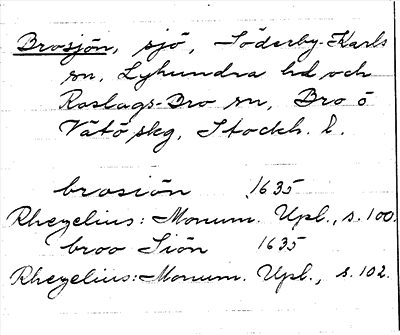 Brosjön, sjö, Söderby-Karls
sn, Lyhundra hd, och
Roslags-Bro sn, Bro ö
Vätö skg, Stockh. l.
brosiön 1635
Rhezelius: Monum. Upl., s. 100.
broo Siön 1635
Rhezelius: Monum. Upl., s. 102.